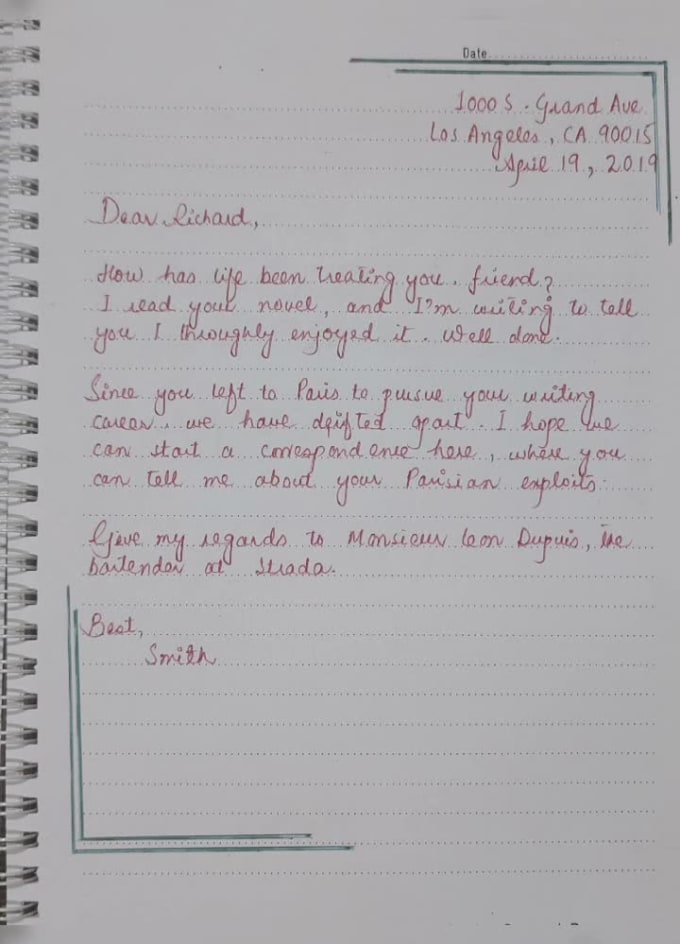 Date
1000 S. Grand Ave.
Los Angeles, CA 90015
April 19, 2019
Dear Richard,
How has life been treating you, friend?
I read your novel, and I'm writing to tell
you I throughly enjoyed it. Well done.
Since you left to Paris to pursue your writing
career, we have drifted apart. I hope we
can start a correspondence here, where you
can tell me about your Parisian exploits.
Give my regards to Monsieur Leon Dupuis, the
bartender at Strada.
Best,
Smith